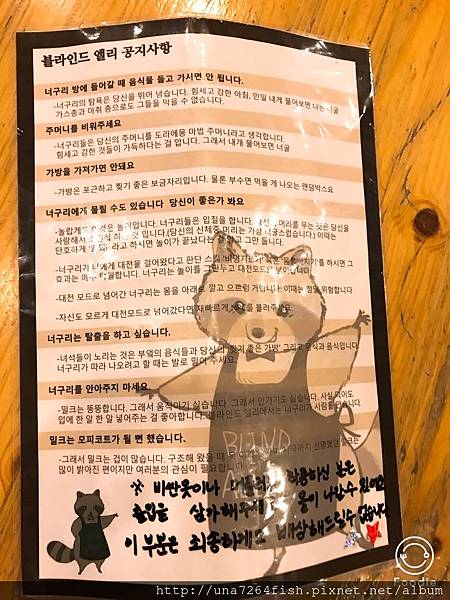 블라인드 엘리 공지사항
너구리 방에 들어갈 때 음식물 들고 가시면 안 됩니다.
-너구리의 탐욕은 당신을 뛰어 넘습니다. 힘세고 강한 아침, 만일 내게 물어보면 나는 너굴
가스총과 마취 총으로도 그들을 막을 수 없습니다.
주머니를 비워주세요
-너구리들은 당신의 주머니를 도라에몽 마법 주머니라고 생각합니다.
힘세고 강한 것들이 가득하다는 걸 압니다. 그래서 내개 물어보면 너굴
가방을 가져가면 안돼요
-가방은 포근하고 찢기 좋은 보금자리입니다. 물론 부수면 먹을 게 나오는 랜덤박스요
너구리에게 물릴 수도 있습니다 당신이 좋은가 봐요
-놀랍게도 놀이입니다. 너구리들은 입질을 합니다. 머리를 무는 것은 당신을
사랑해서 입니다.(당신의 신체중 머리는 가장 너굴스럽습니다.) 이때는
단호하게 라고 하시면 놀이가 끝났다는 그만 둡니다.
-너구리가 대전을 걸어왔다고 판단 하시면 그
효과는 너구리는 놀이를 그만두고 대전모드로
-대전 모드로 넘어간 너구리는 몸을 아래로 깔고 으르렁 거립니다. 이때는 정말 위험합니다
-자신도 모르게 대전모드로 넘어갔다면 재빠르게 불러주세요
너구리는 탈출을 하고 싶습니다.
-녀석들이 노리는 것은 부엌의 음식들과 당신의 찢기 좋은 가방 그리고 음식과 음식입니다.
너구리가 따라 나오려고 할 때는 발로 밀어 주세요.
너구리를 안아주지 마세요.
-밀크는 뚱뚱합니다. 그래서 움직이기 싫습니다. 그래서 안기기도 싫습니다.
입에 한 알 한 알 넣어주는 걸 좋아합니다. 블라인드 엘리에서는 너구리가 사람을
밀크는 모피코트가 될 뻔 했습니다.
-그래서 밀크는 겁이 많습니다. 구조해 왔을 때
많이 밝아진 편이지만 여러분의 관심이 필요합니다.
BLIND
※ 비싼옷이나 착용하신 분은
출입을 삼가해주세요 물이 나갈수 있어요
이 부분은 죄송하게도 배상해드릴수 없습니다
Foodie
http://una7264fish.pixnet.net/album